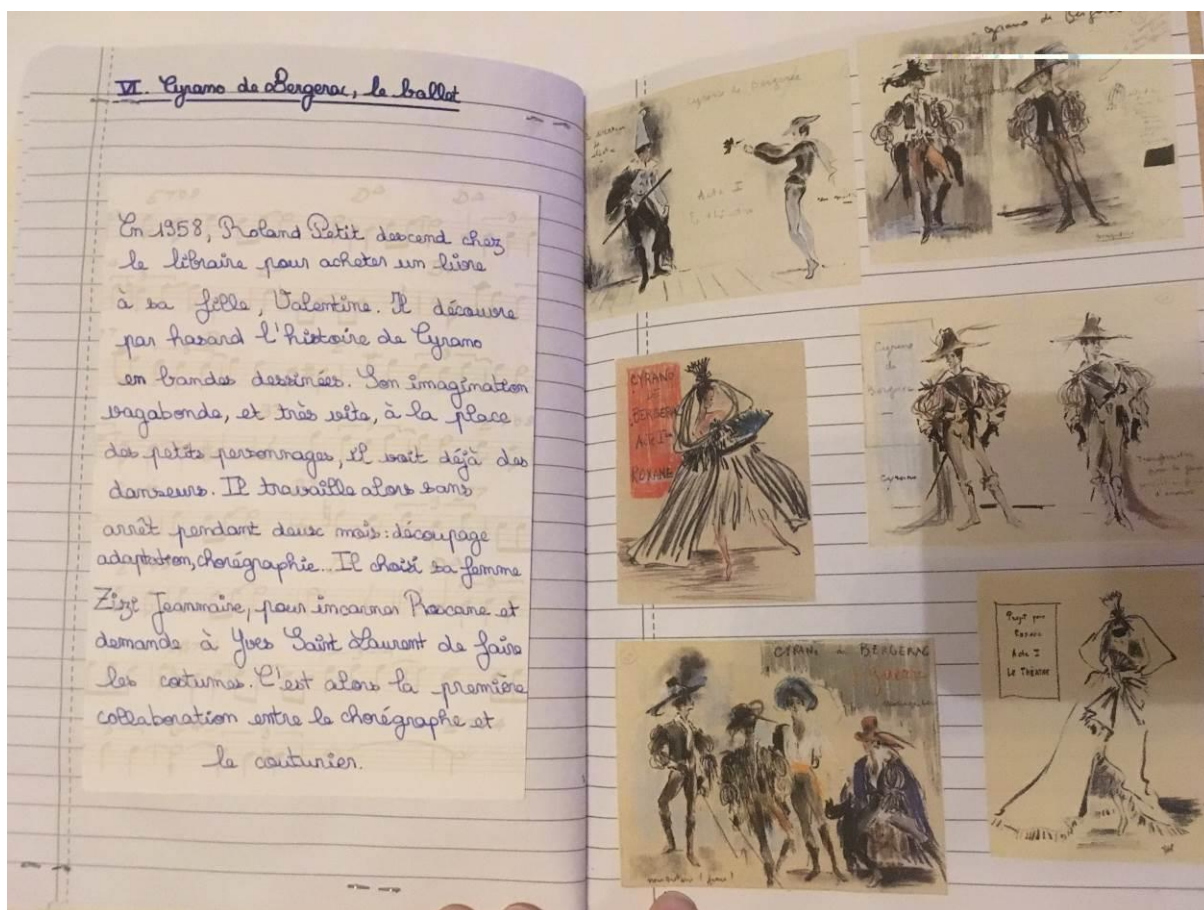 VI. Cyrano de Bergerac, le ballet
En 1958, Roland Petit descend chez
le libraire pour acheter un livre
à sa fille, Valentine. Il découvre
par hasard l'histoire de Cyrano
en bandes dessinées. Son imagination
vagabonde, et très vite, à la place
des petits personnages, il voit déjà des
danseurs. Il travaille alors sans
arrêt pendant deux mois: découpage
adaptation, chorégraphie... Il choisi sa femme
Zizi Jeanmaire, pour incarner Roxane et
demande à Yves Saint Laurent de faire
les costumes. C'est alors la première
collaboration entre le chorégraphe et
le couturier.
Cyrano de Bergerac
Acte I
Le théâtre
Cyrano de
CYRANO
DE
BERGERAC
Acte I
ROXANE
Cyrano
de
Bergerac
Cyrano
CYRANO de BERGERAC
Projet pour
Roxane
Acte I
Le Théâtre